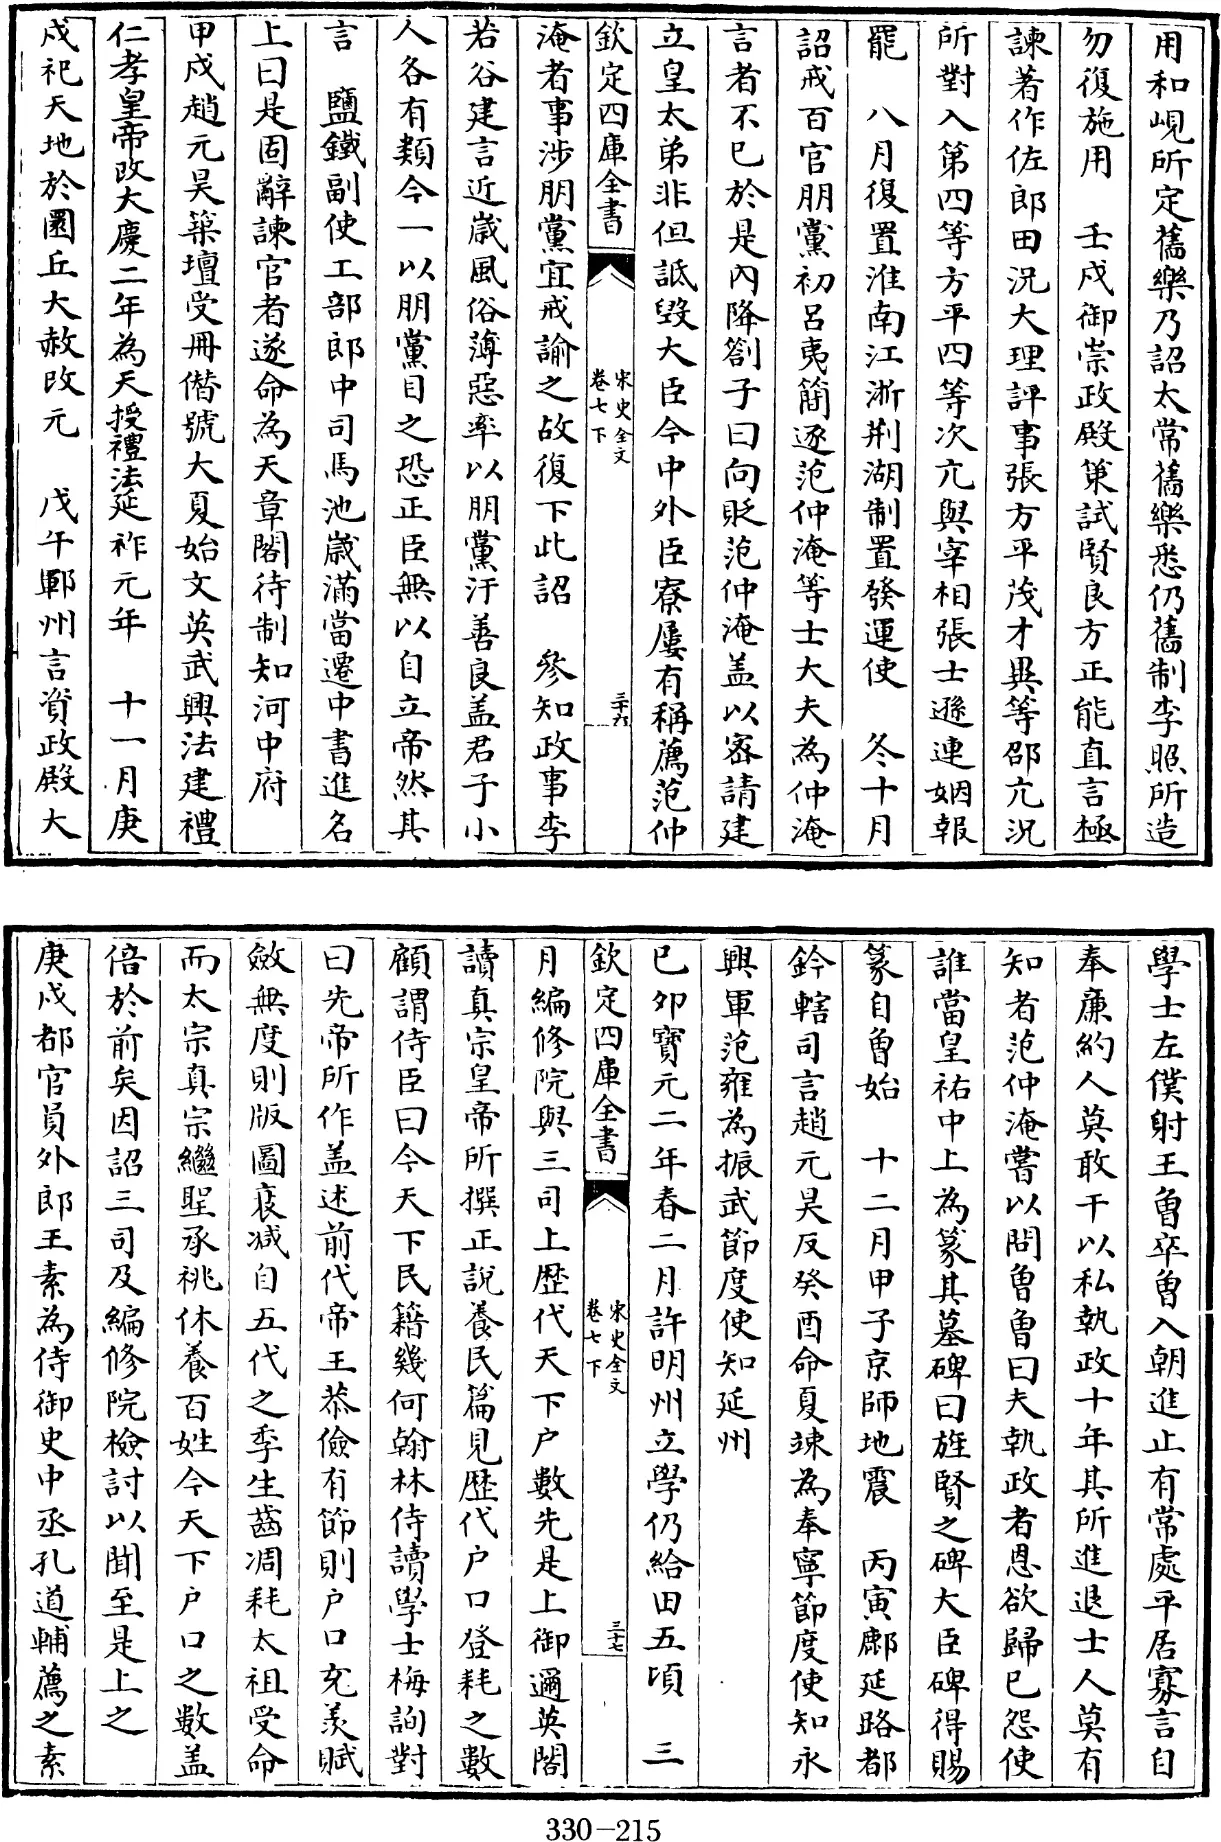 用和峴所定舊樂乃詔太常舊樂悉仍舊制李照所造
勿復施用　壬戌御崇政殿策試賢良方正能直言極
諫著作佐郎田況大理評事張方平茂才異等邵亢況
所對入第四等方平四等次亢與宰相張士遜連姻報
罷　八月復置淮南江浙荆湖制置發運使　冬十月
詔戒百官朋黨初呂夷簡逐范仲淹等士大夫為仲淹
言者不已於是內降劄子曰向貶范仲淹盖以密請建
立皇太弟非但詆毀大臣今中外臣寮屢有稱薦范仲
欽定四庫全書
宋史全文
卷七下
三十六
淹者事涉朋黨宜戒諭之故復下此詔　參知政事李
若谷建言近歲風俗薄惡率以朋黨汙善良盖君子小
人各有類今一以朋黨目之恐正臣無以自立帝然其
言　鹽鐵副使工部郎中司馬池歲滿當遷中書進名
上曰是固辭諫官者遂命為天章閣待制知河中府
甲戌趙元昊築壇受冊僭號大夏始文英武興法建禮
仁孝皇帝改大慶二年為天授禮法延祚元年　十一月庚
戌祀天地於圜丘大赦改元　戊午鄆州言資政殿大
學士左僕射王曾卒曾入朝進止有常處平居寡言自
奉廉約人莫敢干以私執政十年其所進退士人莫有
知者范仲淹嘗以問曾曾曰夫執政者恩欲歸已怨使
誰當皇祐中上為篆其墓碑曰旌賢之碑大臣碑得賜
篆自曾始　十二月甲子京師地震　丙寅鄜延路都
鈐轄司言趙元昊反癸酉命夏竦為奉寧節度使知永
興軍范雍為振武節度使知延州
已夘寶元二年春二月許明州立學仍給田五頃　三
欽定四庫全書
宋史全文
卷七下
三十七
月編修院與三司上歷代天下户數先是上御邇英閣
讀真宗皇帝所撰正說養民篇見歷代户口登耗之數
顧謂侍臣曰今天下民籍幾何翰林侍讀學士梅詢對
曰先帝所作盖述前代帝王恭儉有節則户口充羨賦
斂無度則版圖衰減自五代之季生齒凋耗太祖受命
而太宗真宗繼聖承祧休養百姓今天下户口之數盖
倍於前矣因詔三司及編修院檢討以聞至是上之
庚戌都官員外郎王素為侍御史中丞孔道輔薦之素
330-215